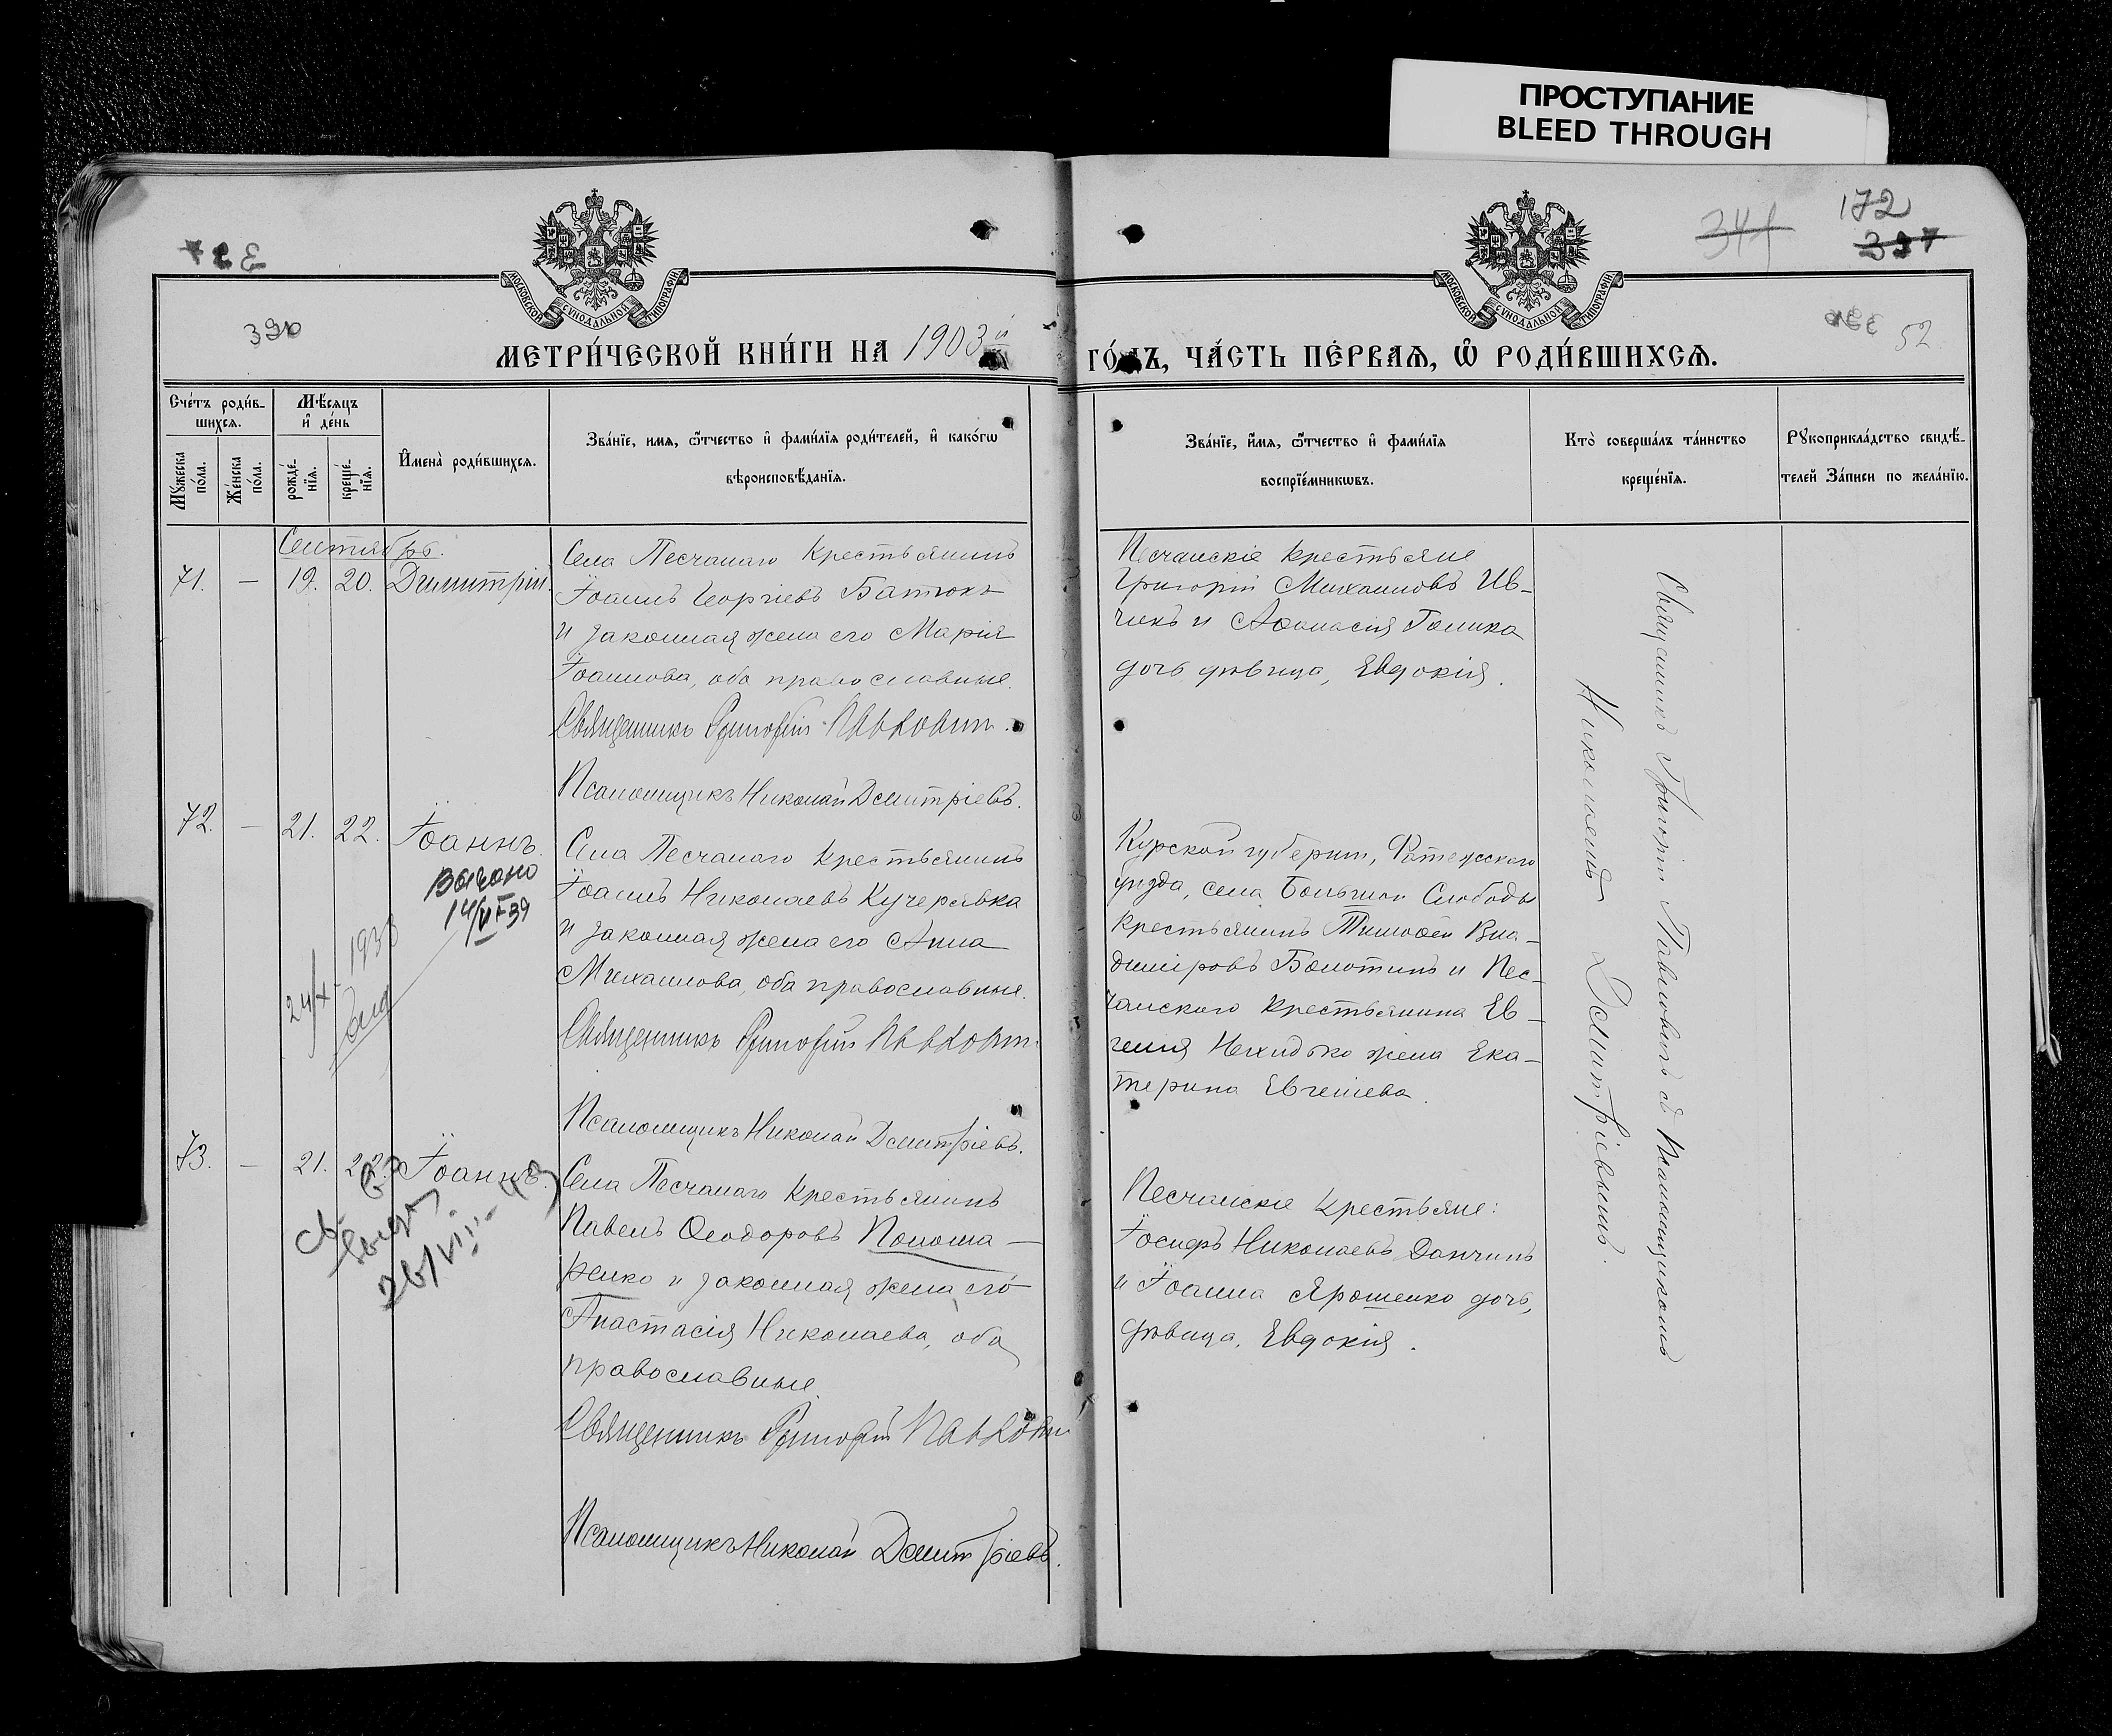 ПРОСТУПАНИЕ
BLEED THROUGH
172
341
397
390
52
МОСКОВСКОЙ СѴНОДАЛЬНОЙ ТИПОГРАФІИ
МОСКОВСКОЙ СѴНОДАЛЬНОЙ ТИПОГРАФІИ
МЕТРИ́ЧЕСКОЙ КНИ́ГИ НА 1903 й
ГО́ДЪ, ЧА́СТЬ ПЕ́РВАѦ, Ѿ РОДИ́ВШИХСѦ.
Сче́тъ роди́в-
шихсѧ.
Мꙋ́жеска по́ла.
Же́нска по́ла.
Мѣ́сѧцъ
и҆ де́нь
рожде́-нїѧ.
креще́-нїѧ.
И҆мена̀ роди́вшихсѧ.
Зва́нїе, имѧ, ѿтчество и҆ фами́лїѧ роди́телей, и҆ како́гѡ
вѣроисповѣ́данїѧ.
Зва́нїе, и҆́мѧ, ѿтчество и҆ фами́лїѧ
воспрїе́мникѡвъ.
Кто̀ соверша́лъ та́инство
креще́нїѧ.
Рꙋкоприкла́дство свидѣ́-
телей За́писи по жела́нїю.
Сентябрь.
71. — 19. 20. Димитрій.
Села Песчанаго крестьянинъ
Іоаннъ Георгіевъ Батюкъ
и законная жена его Марія
Іоаннова, оба православные.
Священникъ Григорій Павловичъ.
Псаломщикъ Николай Дмитріевъ.
Песчанскіе крестьяне
Григорій Михаиловъ Ив-
чикъ и Аѳанасія Голика
дочь девица, Евдокія.
72. — 21. 22. Іоаннъ.
Выдано
14/VI-39
24/X-1938
Села Песчанаго крестьянинъ
Іоаннъ Николаевъ Кучерявка
и законная жена его Анна
Михаилова, оба православные.
Священникъ Григорій Павловичъ.
Псаломщикъ Николай Дмитріевъ.
Курской губерніи, Фатежского
уезда, села Большой Слободы
крестьянинъ Тимоѳей Вла-
диміровъ Болотинъ и Пес-
чанского крестьянина Ев-
генія Нехидько жена Ека-
терина Евгеніева.
73. — 21. 22. Іоаннъ.
26/VIII-
Села Песчанаго крестьянинъ
Павелъ Ѳеодоровъ Понома-
ренко и законная жена его
Анастасія Николаева, оба
православные.
Священникъ Григорій Павловичъ
Псаломщикъ Николай Дмитріевъ.
Песчанскіе крестьяне:
Іосифъ Николаевъ Данчинъ
и Іоанна Ярошенко дочь,
девица, Евдокія.
Священникъ Григорій Павловичъ съ Псаломщикомъ
Николаемъ Дмитріевымъ.